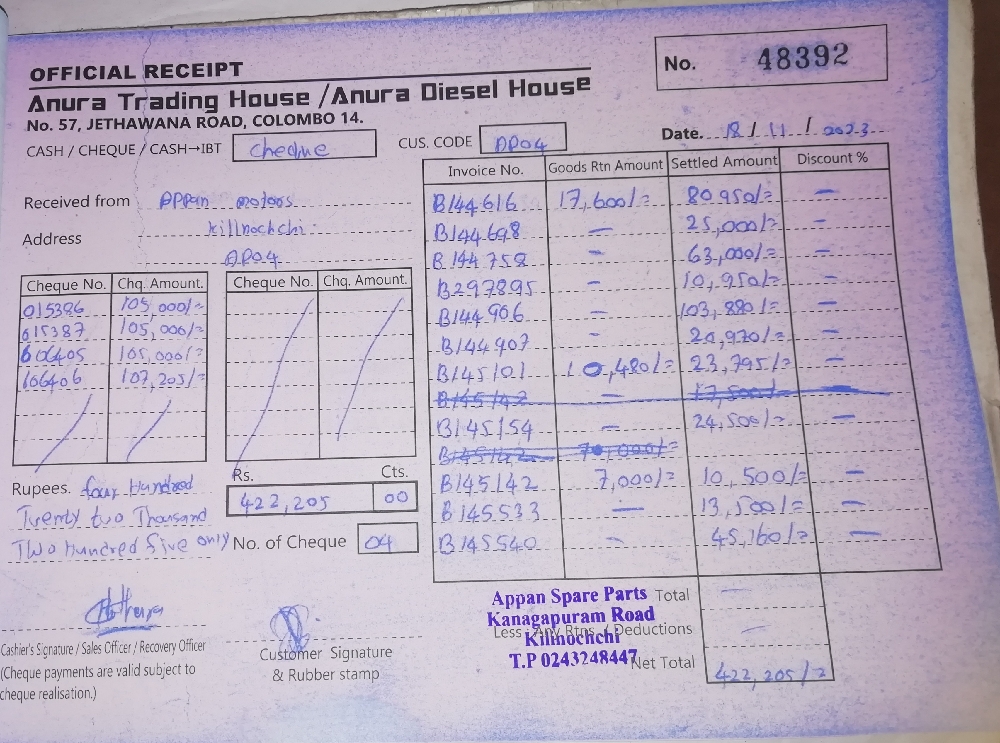 OFFICIAL RECEIPT
No. 48392
Anura Trading House /Anura Diesel House
No. 57, JETHAWANA ROAD, COLOMBO 14.
CASH / CHEQUE / CASH→IBT Cheque
CUS. CODE AP04
Date. 18 / 11 / 2023
Received from Appan motors
Address Killnochchi.
AP04
Cheque No. Chq. Amount. Cheque No. Chq. Amount.
015386 105,000/=
015387 105,000/=
606405 105,000/=
606406 107,205/=
Rupees. four Hundred
Twenty two Thousand
Two Hundred five only
Rs. Cts.
422,205 00
No. of Cheque 04
Invoice No. Goods Rtn Amount Settled Amount Discount %
B144616 17,600/= 80950/= —
B144698 — 25,000/= —
B144758 — 63,000/= —
B297895 — 10,950/= —
B144906 — 103,880/= —
B144907 — 20,970/= —
B145101 10,480/= 23,795/= —
B145142 — 17,500/= —
B145154 — 24,500/= —
B145142 70,000/=
B145142 7,000/= 10,500/= —
B145533 — 13,500/= —
B145540 — 45,160/= —
Total —
Less : Any Rtns / Deductions —
Net Total 422,205/=
Appan Spare Parts
Kanagapuram Road
Kilinochchi
T.P 0243248447
Cashier's Signature / Sales Officer / Recovery Officer
(Cheque payments are valid subject to
cheque realisation.)
Customer Signature
& Rubber stamp